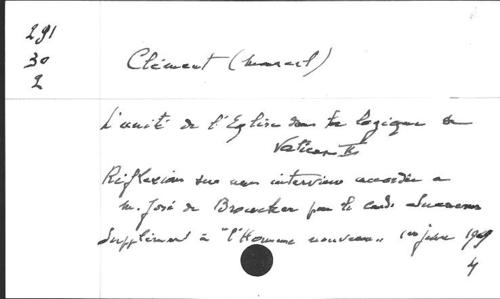 291
30
2
Clément (Marcel)
L'unité de l'Eglise dans la logique de
Vatican II
Réflexions sur une interview accordée à
M. José de Broucker par le card. Suenens
Supplément à "l'Homme nouveau" 1er juin 1969
4